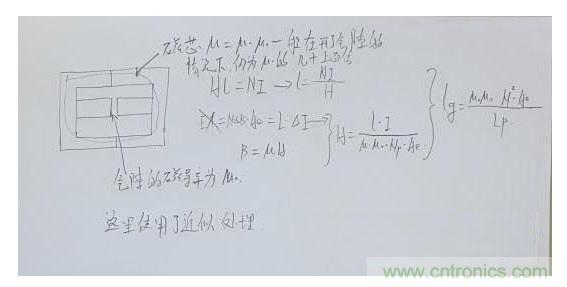 磁芯 μ = μr·μ0 一般在开了气隙的
情况下,仍为μ0的几十上百倍
Hl = NI → l = NI/H
= N·ΔB·Ae = L·ΔI →
B = μH
H = L·I/(μr·μ0·Np·Ae)
lg = μr·μ0·N²·Ae/Lp
气隙的磁导率为 μ0
这里使用了近似处理
www.cntronics.com